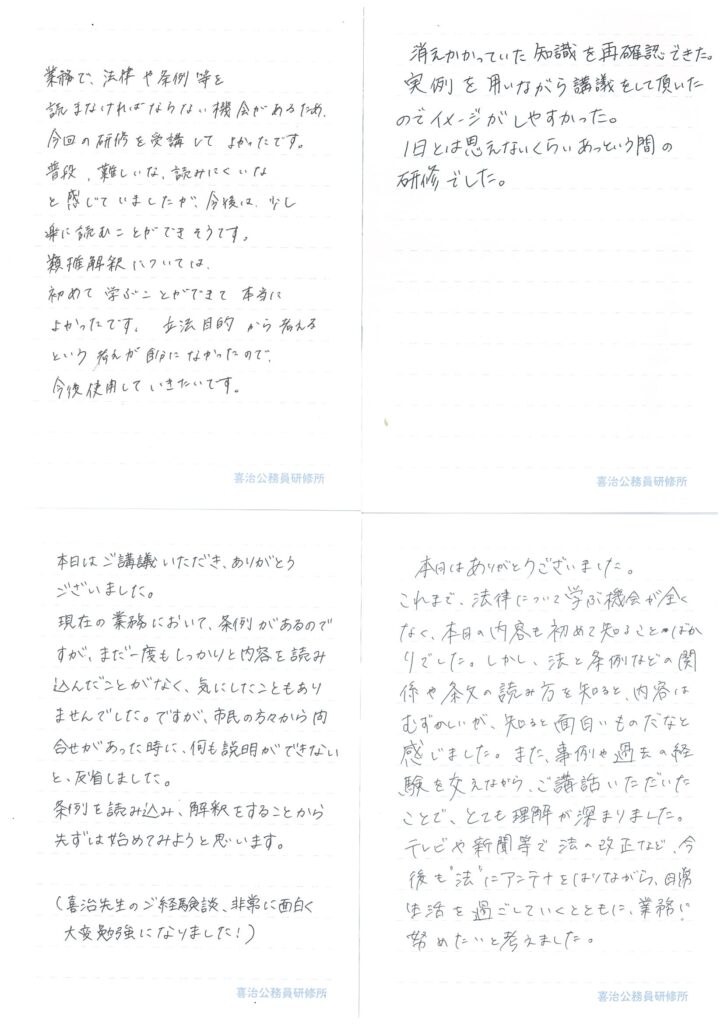 業務で、法律や条例等を
読まなければならない機会があるため、
今回の研修を受講してよかったです。
普段、難しいな、読みにくいな
と感じていましたが、今後は、少し
楽に読むことができそうです。
類推解釈については、
初めて学ぶことができて本当に
よかったです。立法目的から考える
という考えが自分になかったので、
今後使用していきたいです。
喜治公務員研修所
消えかかっていた知識を再確認できた。
実例を用いながら講議をして頂いた
のでイメージがしやすかった。
1日とは思えないくらいあっという間の
研修でした。
喜治公務員研修所
本日はご講議いただき、ありがとう
ございました。
現在の業務において、条例があるので
すが、まだ一度もしっかりと内容を読み
込んだことがなく、気にしたこともあり
ませんでした。ですが、市民の方々から問
合せがあった時に、何も説明ができない
と、反省しました。
条例を読み込み、解釈をすることから
先ずは始めてみようと思います。
(喜治先生のご経験談、非常に面白く
大変勉強になりました!)
喜治公務員研修所
本日はありがとうございました。
これまで、法律について学ぶ機会が全く
なく、本日の内容も初めて知ることばか
りでした。しかし、法と条例などの関
係や条文の読み方を知ると、内容は
むずかしいが、知ると面白いものだなと
感じました。また、事例や過去の経
験を交えながら、ご講話いただいた
ことで、とても理解が深まりました。
テレビや新聞等で法の改正など、今
後も"法"にアンテナをはりながら、日常
生活を過ごしていくとともに、業務に
努めたいと考えました。
喜治公務員研修所